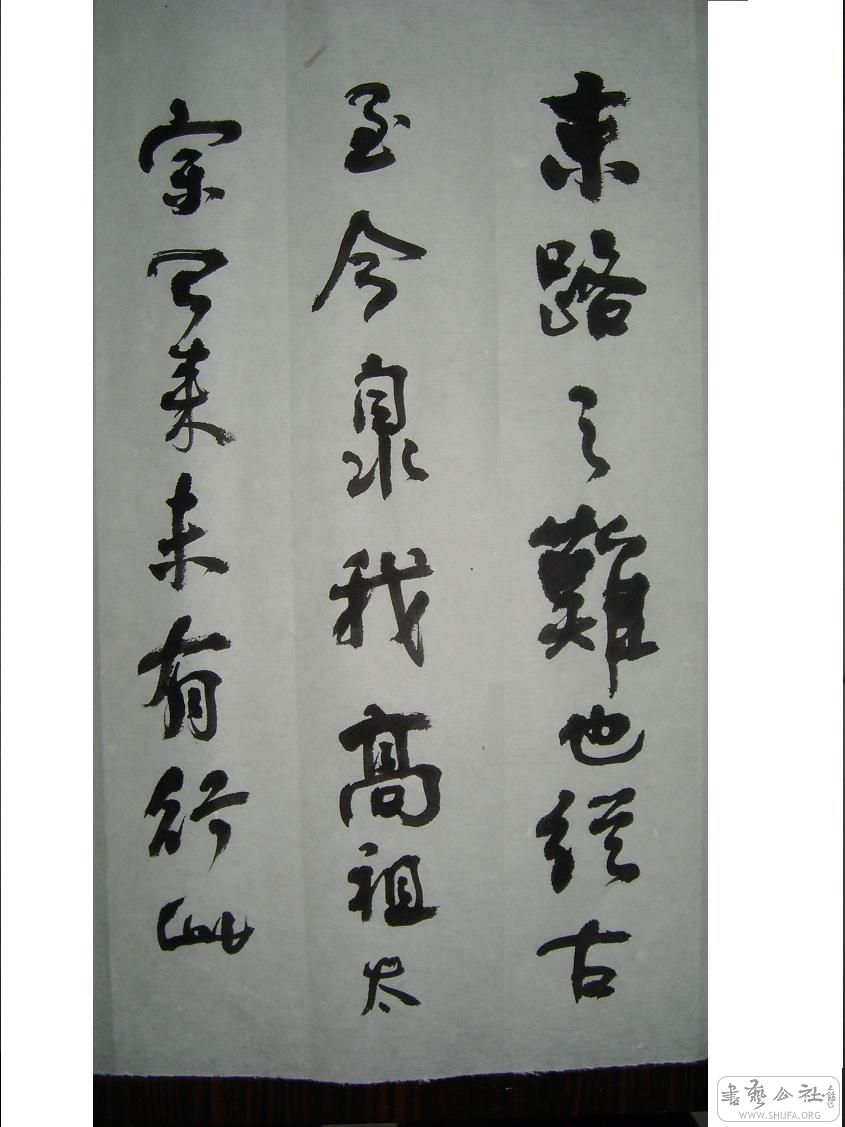 末路之難也從古
至今臮我高祖太
宗已来未有行此
書藝公社
WWW.SHUFA.ORG